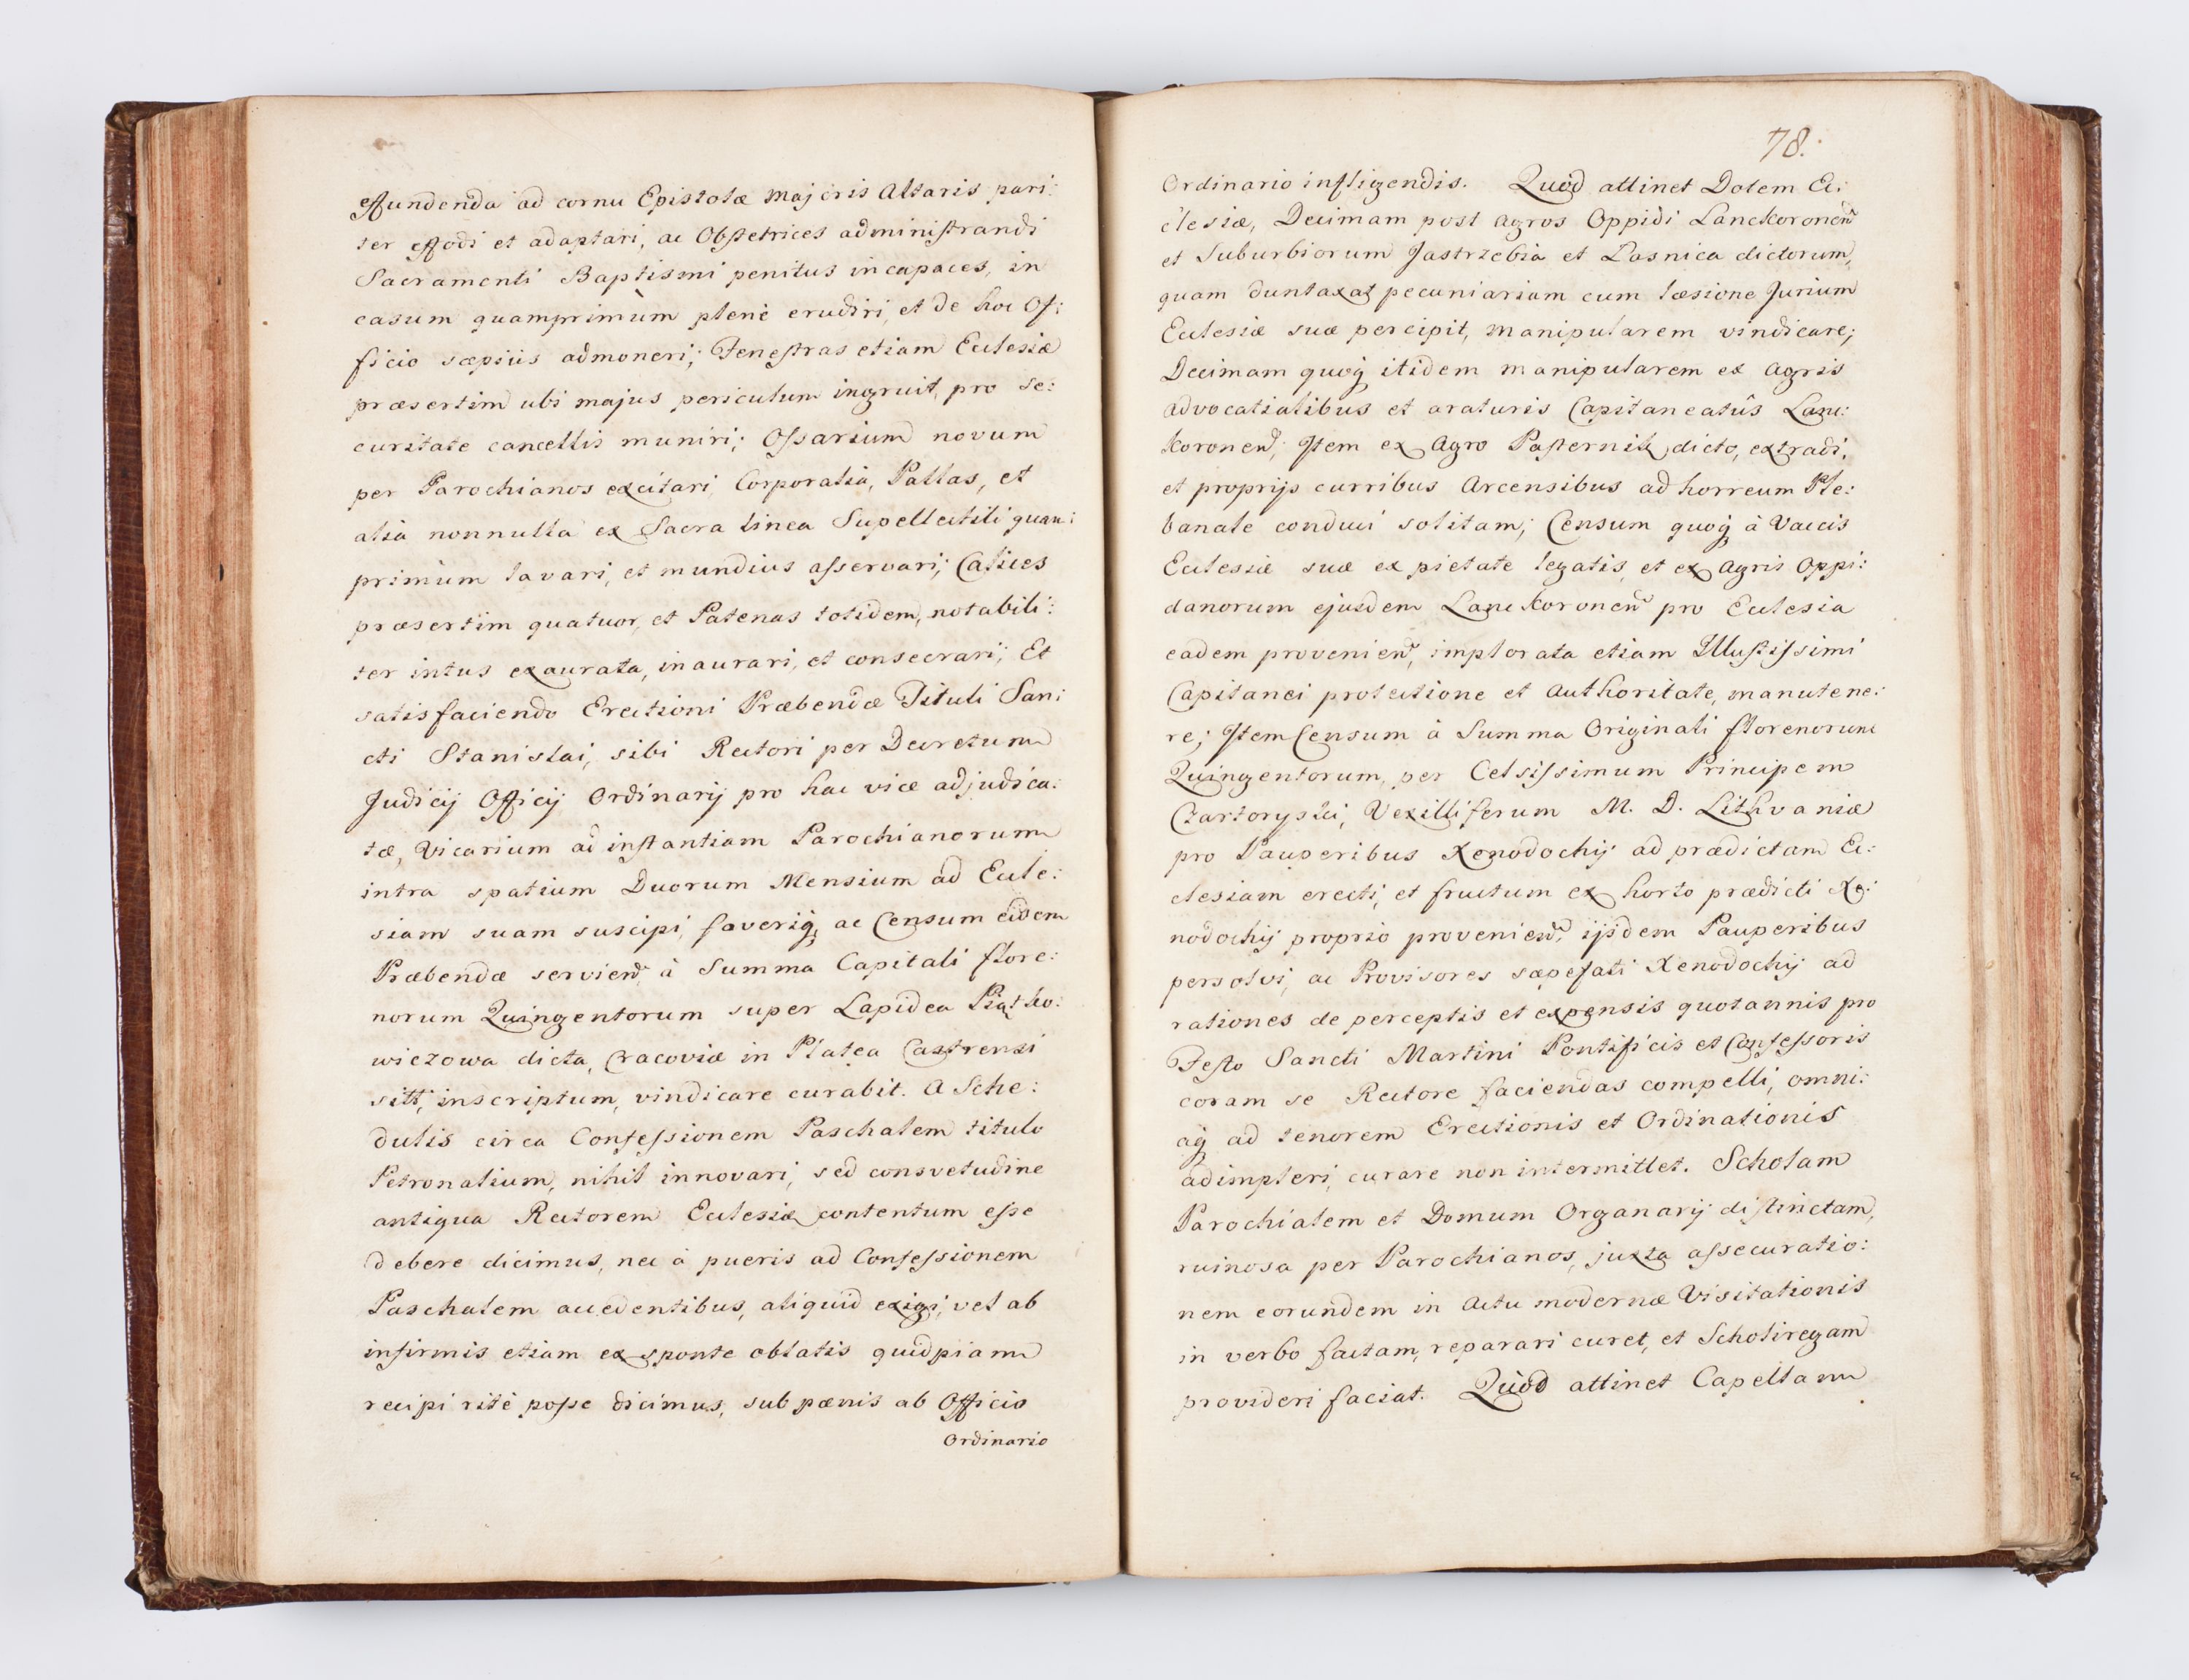 effundenda ad cornu Epistolæ Majoris Altaris pari:
ter effodi et adaptari, ac Obstetrices administrandi
Sacramenti Baptismi penitus incapaces, in
casum quamprimùm plenè erudiri, et de hoc Of:
ficio sæpiùs admoneri; Fenestras etiam Ecclesiæ
præsertim ubi majus periculum ingruit, pro se:
curitate cancellis muniri; Ossarium novum
per Parochianos excitari, Corporalia, Pallas, et
alia nonnulla ex Sacra linea Supellectili quam:
primùm lavari, et mundius asservari; Calices
præsertim quatuor, et Patenas totidem, notabili:
ter intus exaurata, inaurari, et consecrari; Et
satisfaciendo Erectioni Præbendæ Tituli San:
cti Stanislai, sibi Rectori per Decretum
Judicij Officij Ordinarij pro hac vice adjudica:
tæ, Vicarium ad instantiam Parochianorum
intra spatium Duorum Mensium ad Eccle:
siam suam suscipi, foveriq, ac Censum eidem
Præbendæ servien, à Summa Capitali flore:
norum Quingentorum super Lapidea Piątko:
wiczowa dicta, Cracoviæ in Platea Castrensi
sitt, inscriptum, vindicare curabit. A Sche:
dulis circa Confessionem Paschalem titulo
Petronalium, nihil innovari, sed consvetudine
antiqua Rectorem Ecclesiæ contentum esse
debere dicimus, nec à pueris ad Confessionem
Paschalem accedentibus, aliquid exigi, vel ab
infirmis etiam ex sponte oblatis quidpiam
recipi ritè posse dicimus, sub pænis ab Officio
Ordinario
78.
Ordinario infligendis. Quod attinet Dotem Ec:
clesiæ, Decimam post Agros Oppidi Lanckoronen
et Suburbiorum Jastrzebia et Lasnica dictorum,
quam duntaxat pecuniariam cum læsione Jurium
Ecclesiæ suæ percipit, manipularem vindicare;
Decimam quoq itidem manipularem ex Agris
advocatialibus et araturis Capitaneatûs Lanc:
koronen, Item ex Agro Pasternik dicto, extradi,
et proprijs curribus Arcensibus ad horreum Ple:
banale conduci solitam; Censum quoq à Vaccis
Ecclesiæ suæ ex pietate legatis, et ex Agris Oppi:
danorum ejusdem Lanckoronen pro Ecclesia
eadem provenien, implorata etiam Illustissimi
Capitanei protectione et Authoritate, manutene:
re; Item Censum à Summa Originali florenorum
Quingentorum, per Celsissimum Principem
Czartoryski, Vexilliferum M. D. Lithvaniæ
pro Pauperibus Xenodochij ad prædictam Ec:
clesiam erecti, et fructum ex horto prædicti Xe:
nodochij proprio provenien, ijsdem Pauperibus
persolvi, ac Provisores sæpefati Xenodochij ad
rationes de perceptis et expensis quotannis pro
Festo Sancti Martini Pontificis et Confessoris
coram se Rectore faciendas compelli, omni:
aq ad tenorem Erectionis et Ordinationis
adimpleri, curare non intermittet. Scholam
Parochialem et Domum Organarij distinctam,
ruinosa per Parochianos, juxta assecuratio:
nem eorundem in Actu modernæ Visitationis
in verbo factam, reparari curet, et Scholiregam
provideri faciat. Quod attinet Capellam